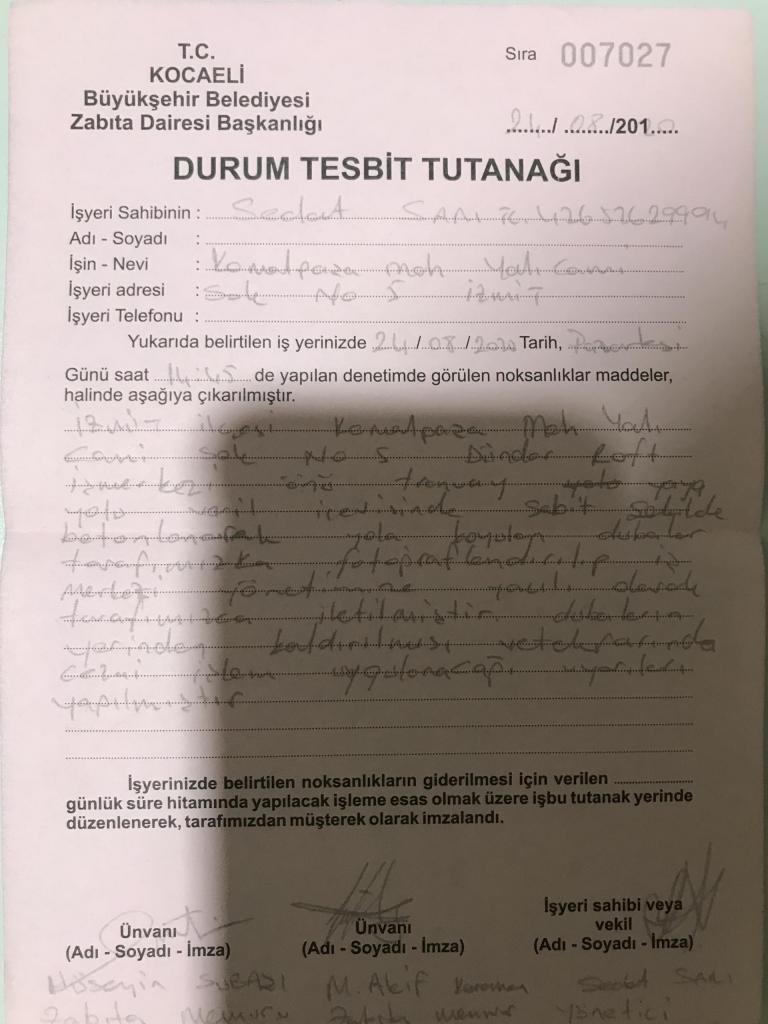 T.C.
KOCAELİ
Büyükşehir Belediyesi
Zabıta Dairesi Başkanlığı
Sıra 007027
24/08/201 20
DURUM TESBİT TUTANAĞI
İşyeri Sahibinin : Sedat SARI TC. 42652629994
Adı - Soyadı :
İşin - Nevi : Kemalpaşa Mah Yalı Cami
İşyeri adresi : Sok No 5 İZMİT
İşyeri Telefonu :
Yukarıda belirtilen iş yerinizde 24/08/2020 Tarih, Pazartesi
Günü saat 14:45 de yapılan denetimde görülen noksanlıklar maddeler,
halinde aşağıya çıkarılmıştır.
İZMİT ilçesi Kemalpaşa Mah Yalı
Cami Sok No 5 Dündar Loft
iş merkezi önü tranvay yolu yaya
yolu varil içerisinde sabit şekilde
betonlanarak yola koyulan dubalar
tarafımızca fotoğraflandırılıp iş
Merkezi yönetimine yazılı olarak
tarafımızca iletilmiştir dubaların
yerinden kaldırılması ve tekrarında
cezai işlem uygulanacağı uyarıları
yapılmıştır
İşyerinizde belirtilen noksanlıkların giderilmesi için verilen
günlük süre hitamında yapılacak işleme esas olmak üzere işbu tutanak yerinde
düzenlenerek, tarafımızdan müşterek olarak imzalandı.
Ünvanı
(Adı - Soyadı - İmza)
Hüseyin SUBAŞI
Zabıta Memuru
Ünvanı
(Adı - Soyadı - İmza)
M. Akif Karaman
Zabıta memur
İşyeri sahibi veya
vekil
(Adı - Soyadı - İmza)
Sedat SARI
Yönetici